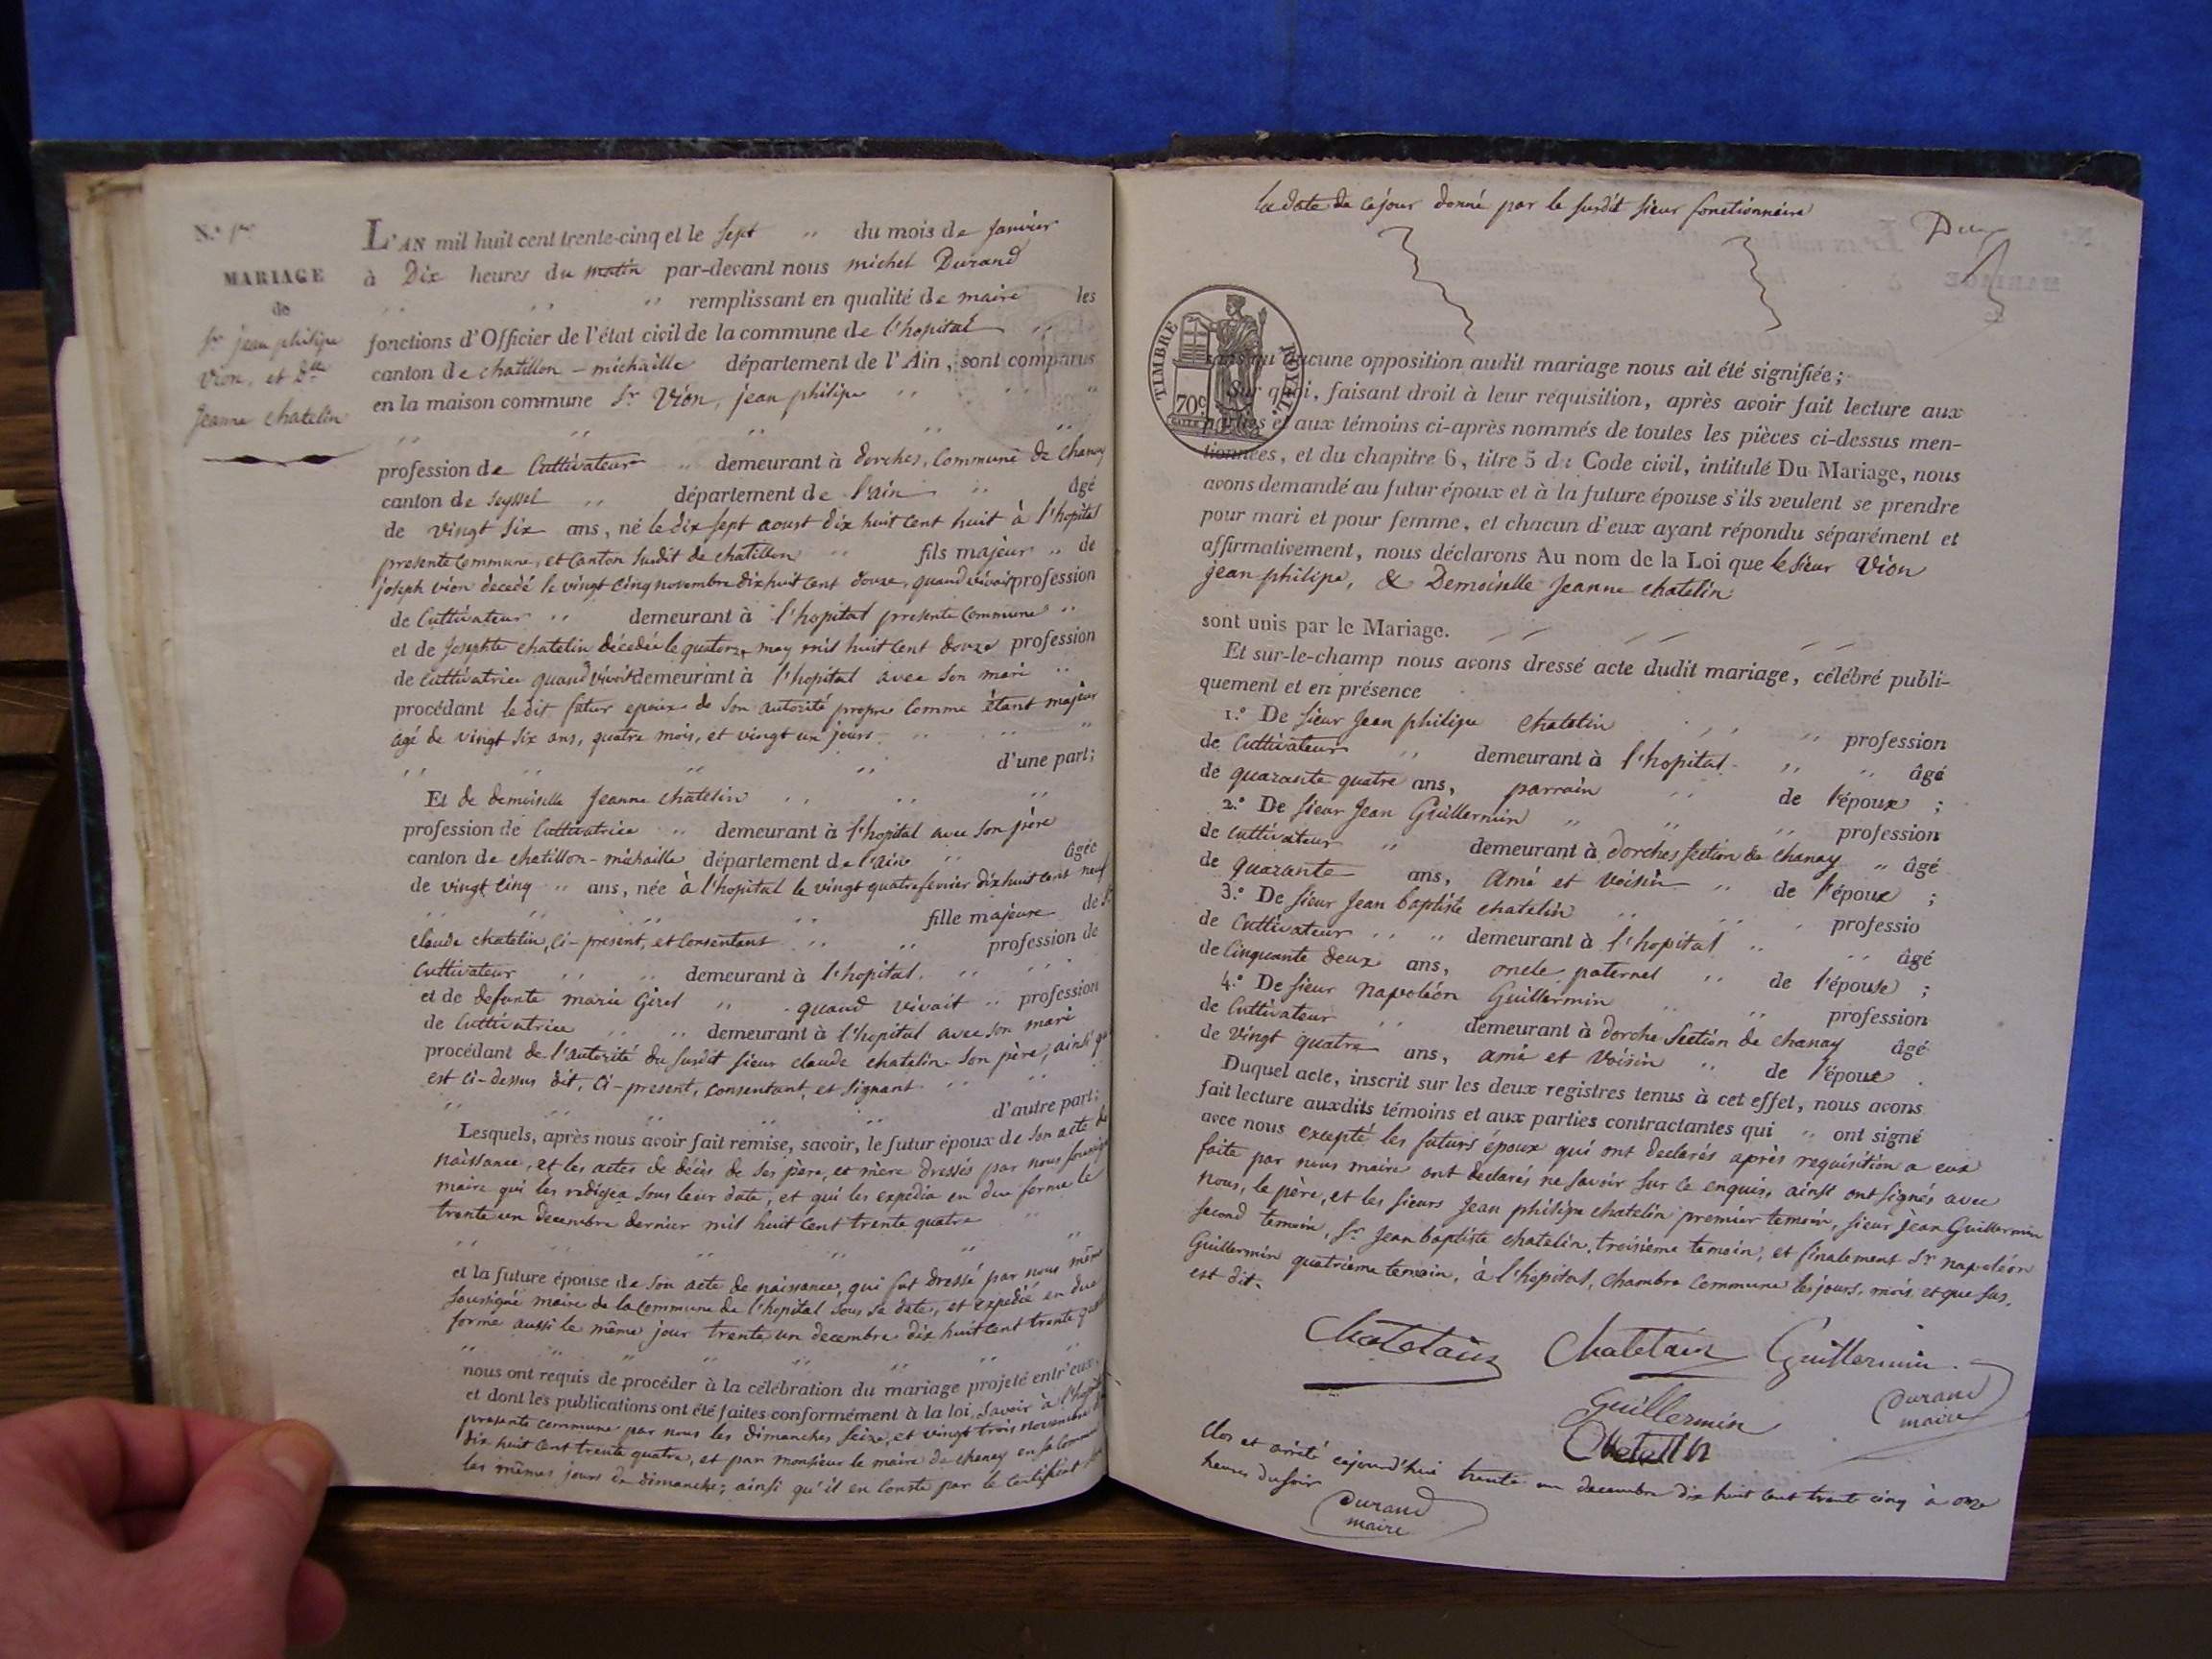 N.o 1er
MARIAGE
de
Sr jean philipe
Vion, et Dlle
Jeanne chatelin
L'AN mil huit cent trente-cinq et le sept " du mois de janvier
à Dix heures du matin par-devant nous michel Durand
" " " remplissant en qualité de maire les
fonctions d'Officier de l'état civil de la commune de l'hopital "
canton de chatillon - michaille département de l'Ain, sont comparus
en la maison commune Sr Vion, jean philipe " " "
" " " " "
profession de Cultivateur " demeurant à dorches, Commune de Chanay
canton de Seyssel " département de l'ain " âgé
de vingt Six ans, né le dix sept aoust dix huit Cent huit à l'hopital
presente Commune, et Canton Susdit de chatillon " fils majeur " de
joseph vion decedé le vingt Cinq novembre dix huit Cent douze, quand vivait profession
de Cultivateur " demeurant à l'hopital presente Commune "
et de Josephte chatelin décedée le quatorze may mil huit Cent douze profession
de Cultivatrice quand vivoit demeurant à l'hopital avec son mari "
procédant le dit futur epoux de Son autorité propre Comme étant majeur
agé de vingt Six ans, quatre mois, et vingt un jours " " "
" " " " d'une part;
Et de demoiselle Jeanne chatelin " " "
profession de Cultivatrice " demeurant à l'hopital avec son père
canton de chatillon - michaille département de l'ain " âgée
de vingt Cinq " ans, née à l'hopital le vingt quatre fevrier dix huit Cent neuf
" " " " fille majeure de Sr
claude chatelin, Ci-present, et Consentant " " profession de
Cultivateur " " demeurant à l'hopital " " "
et de defunte marie Girel " quand vivait " profession
de Cultivatrice " " demeurant à l'hopital avec son mari
procédant de l'autorité du Susdit Sieur claude chatelin Son père, ainsi qu'
est Ci-dessus dit, Ci-present, consentant, et Signant " "
" " " " d'autre part;
Lesquels, après nous avoir fait remise, savoir, le futur époux de Son acte de
naissance, et les actes de décès de Ses père, et mère dressés par nous Soussigné
maire qui les redigea Sous leur date, et qui les expedia en due forme le
trente un decembre dernier mil huit Cent trente quatre "
" " " " " "
et la future épouse de Son acte de naissance, qui fut dressé par nous même
Soussigné maire de la Commune de l'hopital Sous Sa date, et expedié en due
forme aussi le même jour trente un decembre dix huit Cent trente quatre
" " " " " " "
nous ont requis de procéder à la célébration du mariage projeté entr'eux,
et dont les publications ont été faites conformément à la loi, Savoir à l'hopital
presente commune par nous les dimanches Seize, et vingt trois novembre
dix huit Cent trente quatre, et par monsieur le maire de chanay en Sa Commune
les mêmes jours de dimanche; ainsi qu'il en Conste par le Certificat
la date de Cejour donné par le Susdit Sieur fonctionnaire
TIMBRE ROYAL.
70c
sans qu'aucune opposition audit mariage nous ait été signifiée;
Sur quoi, faisant droit à leur réquisition, après avoir fait lecture aux
parties et aux témoins ci-après nommés de toutes les pièces ci-dessus men-
tionnées, et du chapitre 6, titre 5 du Code civil, intitulé Du Mariage, nous
avons demandé au futur époux et à la future épouse s'ils veulent se prendre
pour mari et pour femme, et chacun d'eux ayant répondu séparément et
affirmativement, nous déclarons Au nom de la Loi que le Sieur Vion
jean philipe, & Demoiselle Jeanne chatelin
sont unis par le Mariage.
Et sur-le-champ nous avons dressé acte dudit mariage, célébré publi-
quement et en présence
1.o De Sieur Jean philipe chatelin " " profession
de Cultivateur " demeurant à l'hopital " " âgé
de quarante quatre ans, parrain " de l'époux ;
2.o De Sieur Jean Guillermin " " " profession
de Cultivateur " demeurant à dorches Section de chanay " âgé
de quarante ans, Ami et Voisin " de l'époux ;
3.o De Sieur Jean baptiste chatelin " " " professio
de Cultivateur " " demeurant à l'hopital " " âgé
de Cinquante deux ans, oncle paternel " de l'épouse ;
4.o De Sieur Napoléon Guillermin " " profession
de Cultivateur " demeurant à dorche Section de chanay âgé
de Vingt quatre ans, ami et Voisin " de l'époux .
Duquel acte, inscrit sur les deux registres tenus à cet effet, nous avons
fait lecture auxdits témoins et aux parties contractantes qui " ont signé
avec nous excepté les futurs époux qui ont declarés après requisition a eux
faite par nous maire ont declarés ne Savoir Sur ce enquis, ainsi ont Signés avec
nous, le père, et les Sieurs Jean philipe chatelin premier temoin, Sieur jean Guillermin
Second temoin, Sr Jean baptiste chatelin, troisième temoin, et finalement Sr napoléon
Guillermin quatrième temoin, à l'hopital, Chambre Commune les jours, mois, et que Sus,
est dit.
Chatelain Chatelain Guillermin
Guillermin Durand
maire
Chatelin
Clos et arrêté cejourd'hui trente un decembre dix huit Cent trente cinq à onze
heures du Soir
Durand
maire